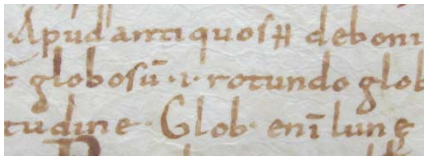 ·Apud antiquos deboni
t̄ globosū·i·rotundo glob
tudine· Glob· enī lune